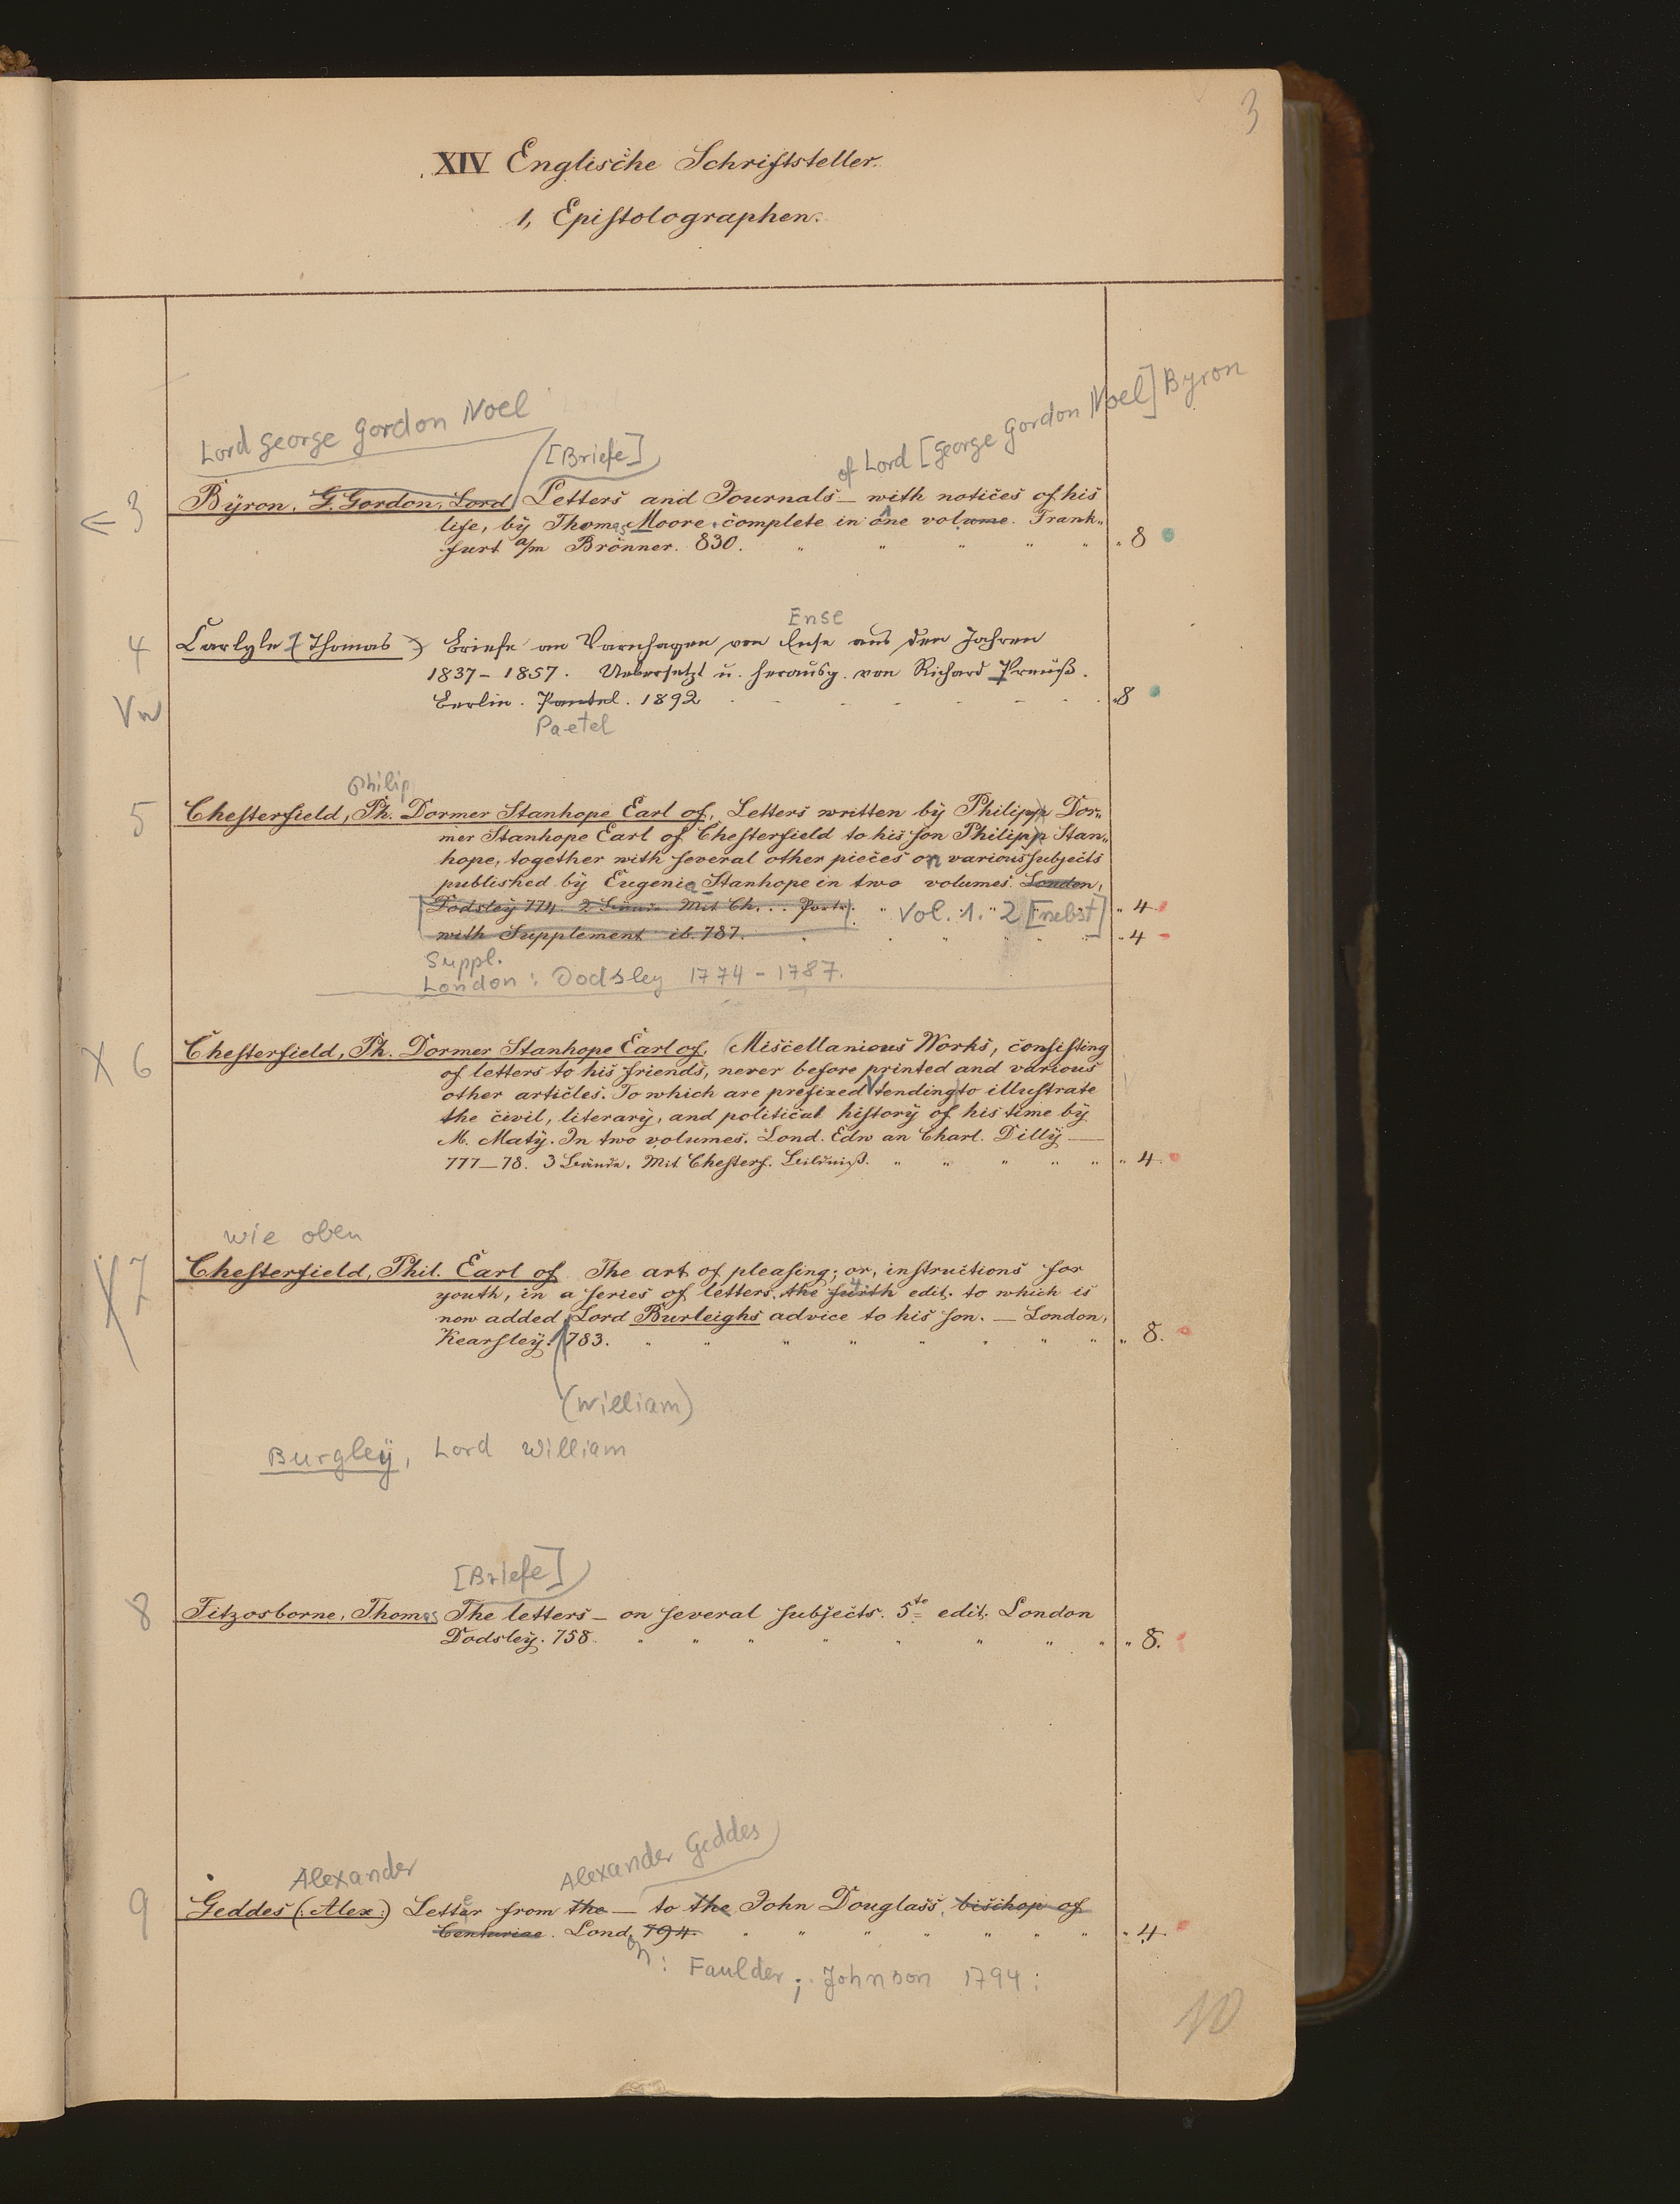 3
XIV Englische Schriftsteller.
1, Epistolographen.
Lord George Gordon Noel
[Briefe]
of Lord [George Gordon Noel] Byron
← 3
Byron, G. Gordon, Lord Letters and Journals — with notices of his
life, by Thomas Moore. complete in one volume. Frank„
furt a/m Brönner. 830. " " " " " " 8
Ense
4
Carlyle (Thomas) Briefe an Varnhagen von Ense aus den Jahren
1837 - 1857. Uebersetzt u. herausg. von Richard Preuß.
Vw
Berlin. Paetel. 1892 - - - - - - "8
Paetel
Philip
5
Chesterfield, Ph. Dormer Stanhope Earl of, Letters written by Philipp Dor„
mer Stanhope Earl of Chesterfield to his son Philipp Stan„
hope, together with several other pieces on various subjects
published by Eugenia Stanhope in two volumes. London,
[Dodsley 774. 2 Bände. Mit Ch. .. Portr. " Vol. 1. 2 [nebst] " 4
with Supplement ib. 787. " " " " " 4
Suppl.
London: Dodsley 1774 - 1787.
X 6
Chesterfield, Ph. Dormer Stanhope Earl of, Miscellanious Works, consisting
of letters to his friends, never before printed and various
other articles. To which are prefixed tending to illustrate
the civil, literary, and political history of his time by
M. Maty. In two volumes. Lond. Edw an Charl. Dilly —
777—78. 3 Bände. Mit Chesterf. Bildniß. " " " " " " 4.
wie oben
X 7
Chesterfield, Phil. Earl of The art of pleasing; or, instructions for
youth, in a series of letters. the furth 4 edit. to which is
now added, Lord Burleighs advice to his son. — London,
Kearsley. 783. " " " " " " " " " 8.
(William)
Burgley, Lord William
[Briefe]
8
Fitzosborne, Thomas The letters — on several subjects. 5te edit. London
Dodsley. 758. " " " " " " " " " 8.
Alexander
Alexander Geddes
9
Geddes (: Alex :) Letter from the — to the John Douglass, bischop of
Centuriae. Lond. 794. " " " " " " " " 4.
on: Faulder; Johnson 1794:
10